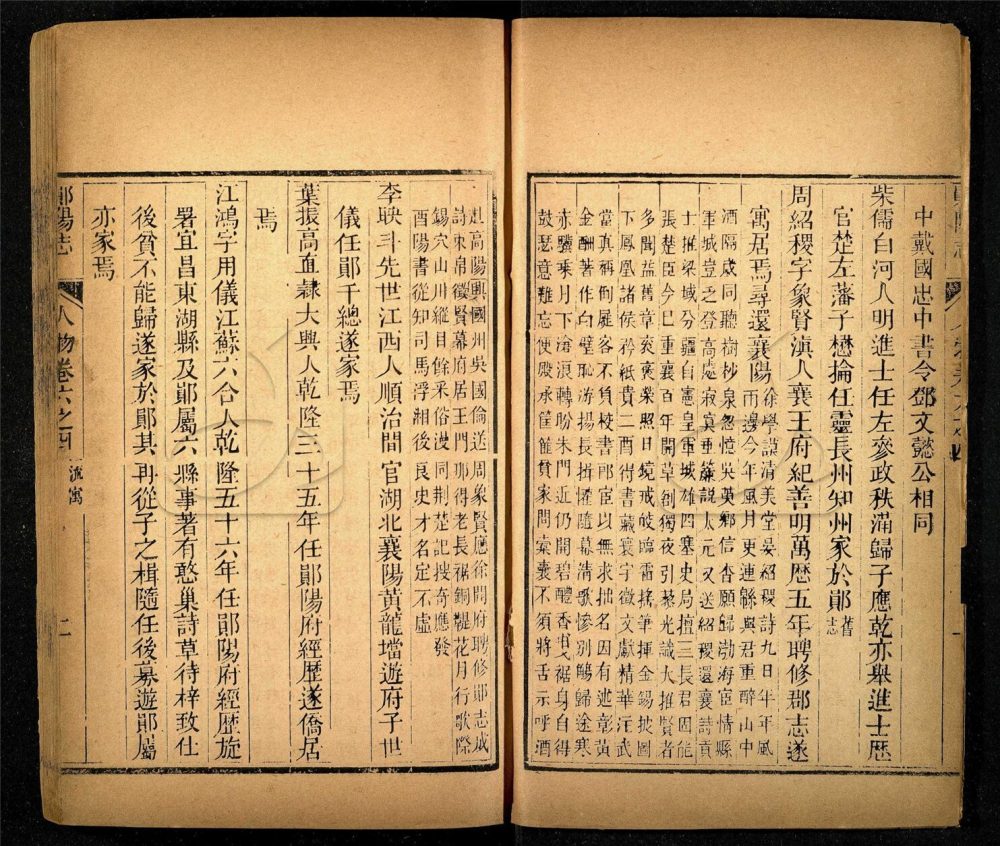 中戴國忠中書令鄧文懿公相同
柴儒白河人明進士任左參政秩滿歸子應乾亦舉進士歷
官楚左藩子懋掄任靈長州知州家於鄖舊志
周紹稷字象賢滇人襄王府紀善明萬歷五年聘修郡志遂
寓居焉尋還襄陽徐學謨清美堂晏紹稷詩九日年年風
而邊今年風月更連緜與君重醉山中
酒隔歲同聽樹杪泉忽憶吳英鄉信杳願歸渤海宦情縣
軍城豈乏登高處寂寞重簾説太元又送紹稷還襄詩賁
士推梁城分疆自憲皇軍城雄四塞史局擅三長君固能
張楚臣今巳重襄百年開草創獨夜引藜光識大推賢者
多聞益舊章袞褒榮照日鏡戒皎臨霜搖筆揮金錫披圖
下鳳凰諸侯矜紙貴二酉得書藏寰宇徵文獻精華汪武
當真稱倒屣客不負校書郎宦以無求拙名因有述彰黃
金酬著作白璧恥游揚長揖摧隨幕清歌慘别鴫歸途寒
亦驪乘月下滄浪轉盼朱門近仍開碧醴香裾身自得
鼓瑟意難忘便殿承筐篚貧家問索囊不須將舌示呼酒
趙高陽興國州吳國倫送周象賢應徐開府聘修鄖志城
詩束帛徵賢幕府居王門那得老長裾銅鞮花月行歌際
錫穴山川縱目餘采俗漫同荆楚記搜奇應發
酉陽書從知司馬浮湘後良史才名定不虛
李映斗先世江西人順治間官湖北襄陽黃龍壋遊府子世
儀任鄖千總遂家焉
葉振高直隸大興人乾隆三十五年任鄖陽府經歷遂僑居
焉
江鴻字用儀江蘇六合人乾隆五十六年任鄖陽府經歷旋
署宜昌東湖縣及鄖屬六縣事著有憨巢詩草待梓致仕
後貧不能歸遂家於鄖其再從子之楫隨任後募遊鄖屬
亦家焉
鄖陽志
人物卷六之四
流寓
二